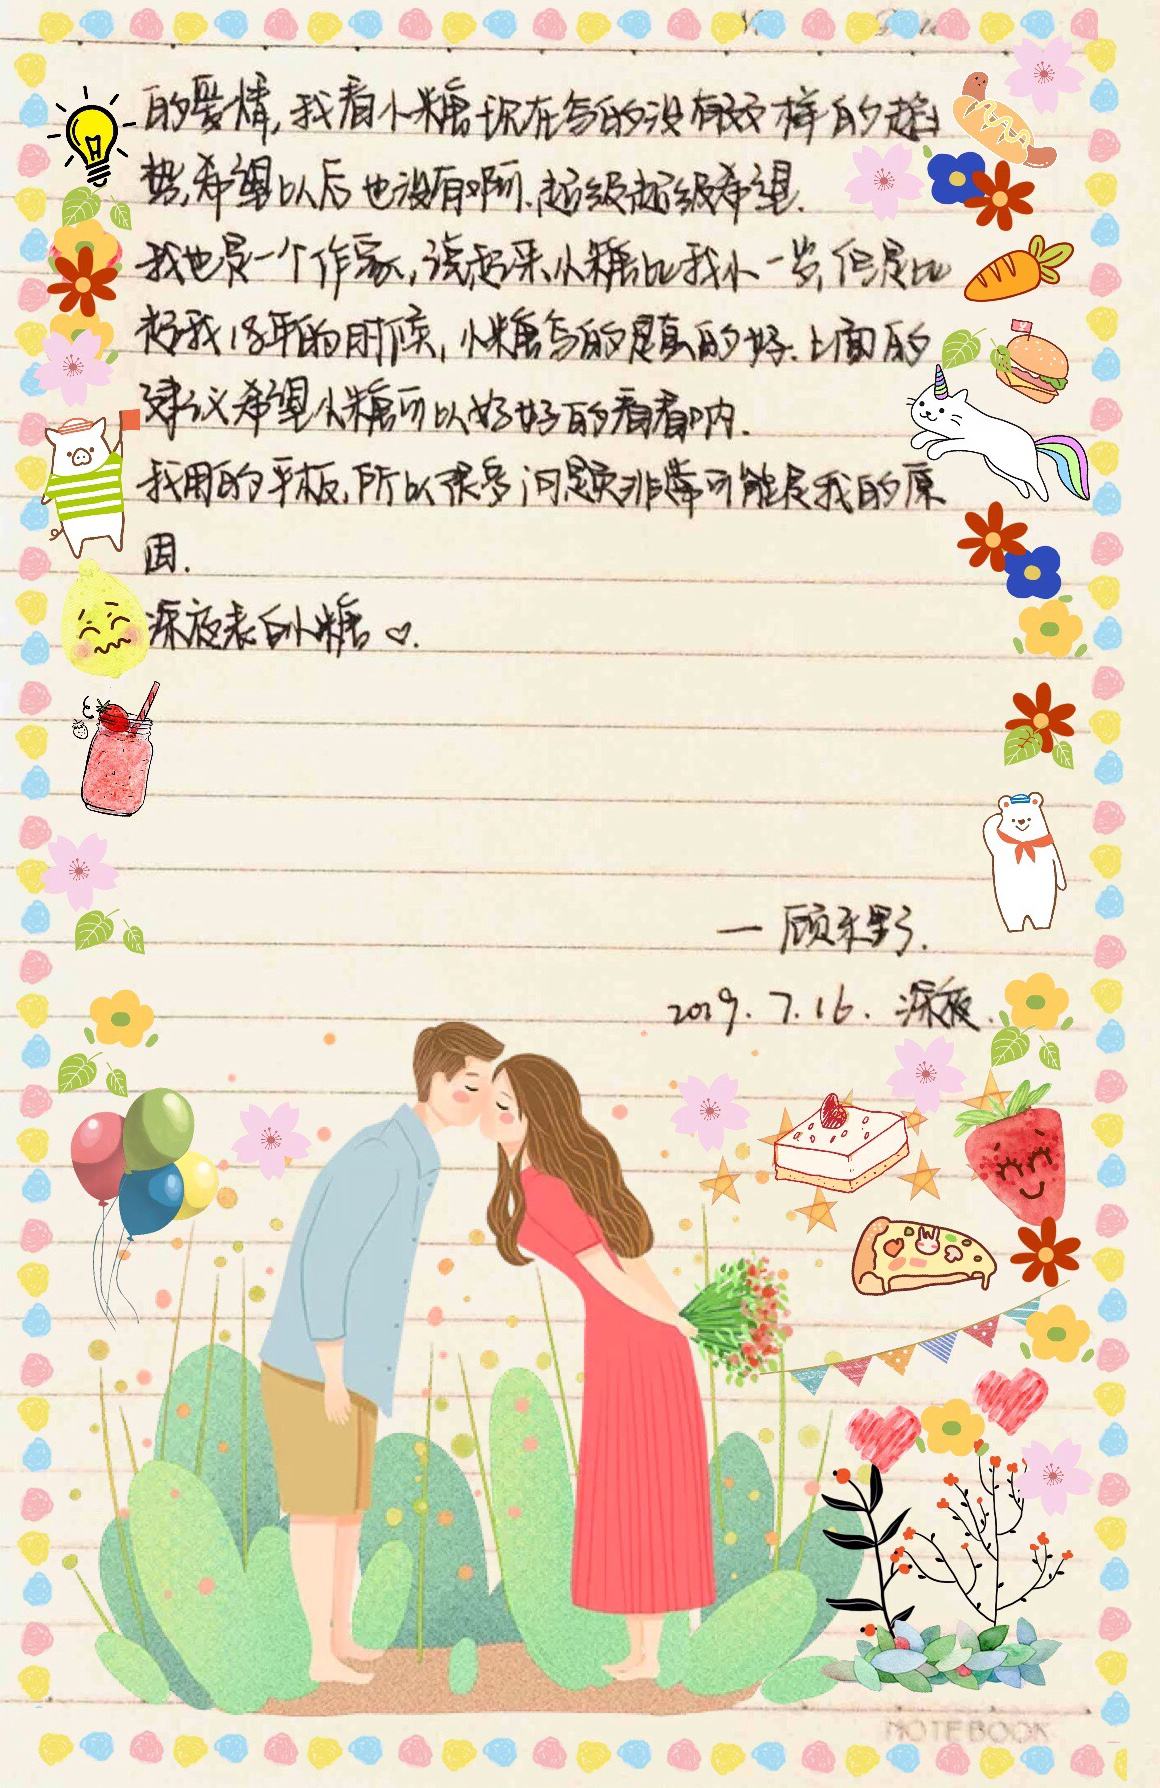 的爱情,我看小糖现在写的没有这样的趋
势,希望以后也没有啊.超级超级希望.
我也是一个作家,说起来小糖比我小一岁,但是比
起我18年的时候,小糖写的是真的好.上面的
建议希望小糖可以好好的看看呐.
我用的平板,所以很多问题非常可能是我的原
因.
深夜表白小糖♡.
一顾未野.
2019.7.16.深夜.
NOTEBOOK